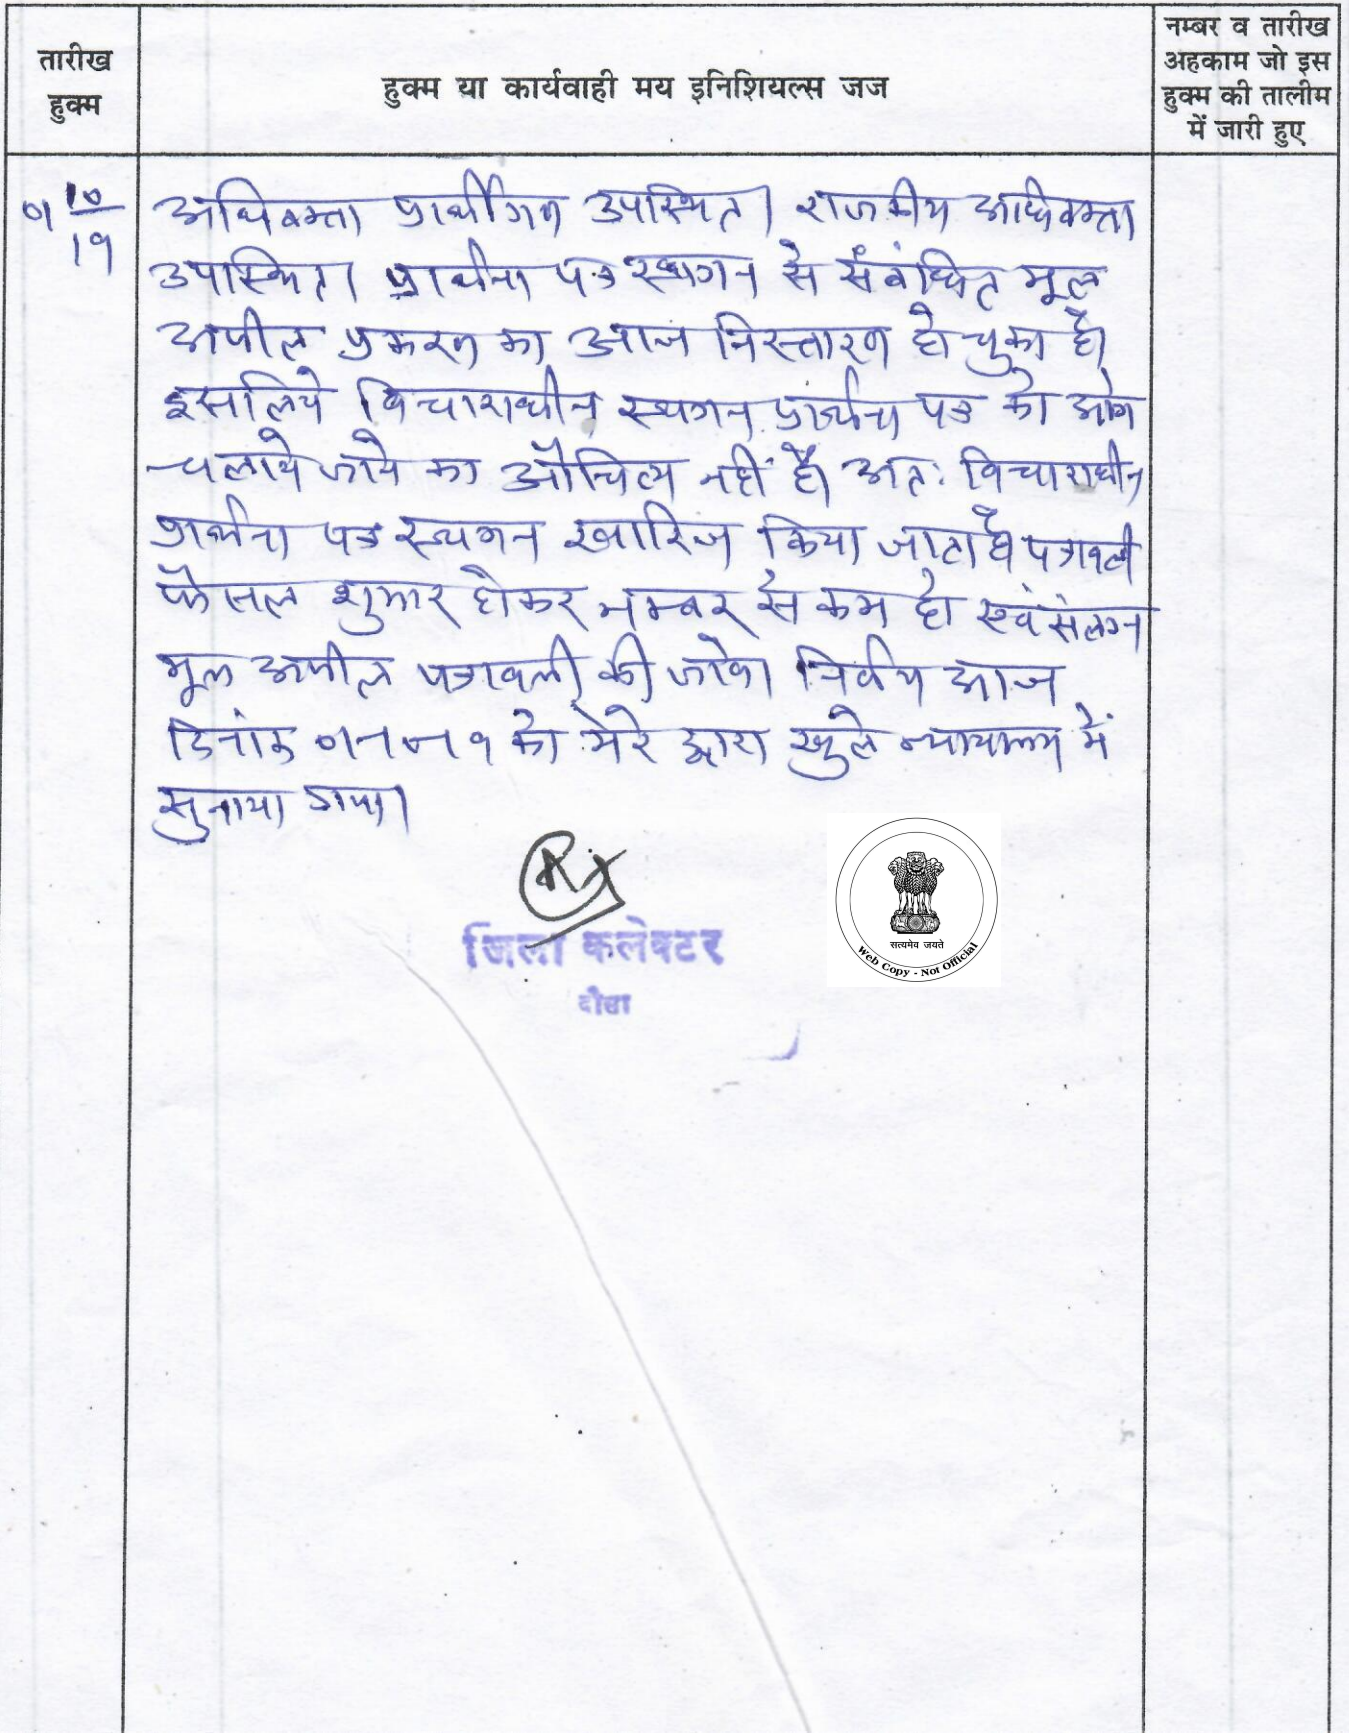 तारीख
हुक्म
हुक्म या कार्यवाही मय इनिशियल्स जज
नम्बर व तारीख
अहकाम जो इस
हुक्म की तालीम
में जारी हुए
10
19
अधिवक्ता प्रार्थीगण उपस्थित। राजकीय अधिवक्ता
उपस्थित। प्रार्थना पत्र स्थगन से संबंधित मूल
अपील प्रकरण का आज निस्तारण हो चुका है।
इसलिये विचाराधीन स्थगन प्रार्थना पत्र को आगे
चलाये जाये का औचित्य नहीं है। अतः विचाराधीन
प्रार्थना पत्र स्थगन खारिज किया जाता है पत्रावली
फैसल शुमार होकर नम्बर से कम हो एवं संलग्न
मूल अपील पत्रावली की जावे। निर्णय आज
दिनांक को मेरे द्वारा खुले न्यायालय में
सुनाया गया।
जिला कलेक्टर
दौसा
सत्यमेव जयते
Web Copy - Not Official